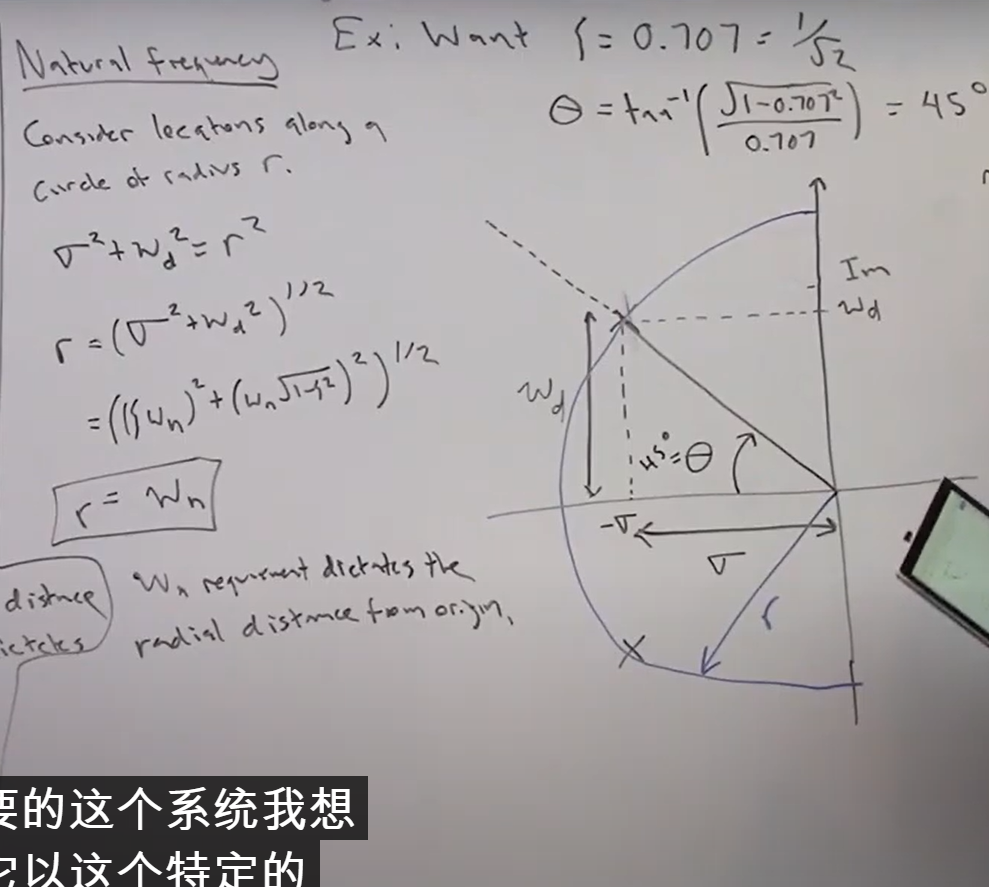 Natural frequency
Consider locations along a
circle of radius r.
σ²+ω_d²=r²
r=(σ²+ω_d²)^1/2
=((ζω_n)²+(ω_n√1-ζ²)²)^1/2
r=ω_n
distance
ω_n requirment dictates the
radial distance from origin.
Ex: Want ζ=0.707=1/√2
θ=tan⁻¹(√1-0.707²/0.707)=45°
Im
ω_d
ω_d
45°=θ
-σ
σ
r
要的这个系统我想
它以这个特定的